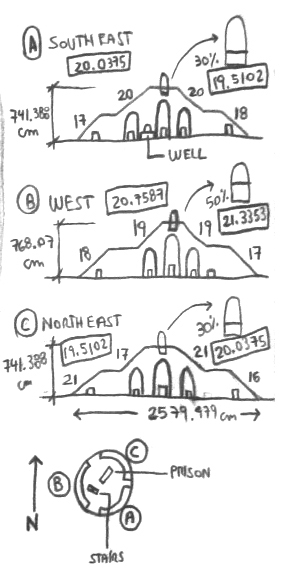 A SOUTHEAST
20.0375
30%
19.5102
741.388
cm
20
20
17
18
WELL
B WEST
20.7587
50%
21.3353
768.07
cm
19
19
18
17
C NORTHEAST
19.5102
30%
20.0375
741.388
cm
17
21
21
16
2579.979cm
C
B
PRISON
A
N
STAIRS